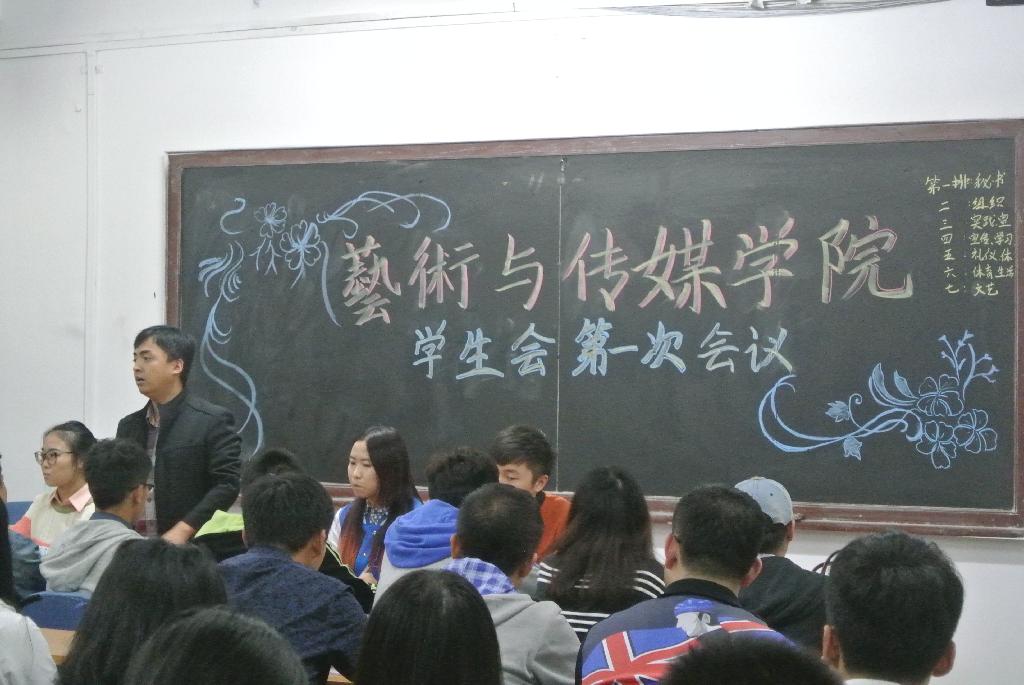 藝術与传媒学院
学生会第一次会议
第一排:秘书
二:组织
三:实践室
四:宣传、学习
五:礼仪、体
六:体育生活
七:文艺